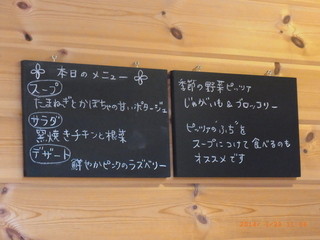 本日のメニュー
スープ
たまねぎとかぼちゃの甘いポタージュ
サラダ
窯焼きチキンと根菜
デザート
鮮やかピンクのラズベリー
季節の野菜ピッツァ
じゃがいも&ブロッコリー
ピッツァの"ふち"を
スープにつけて食べるのも
オススメです